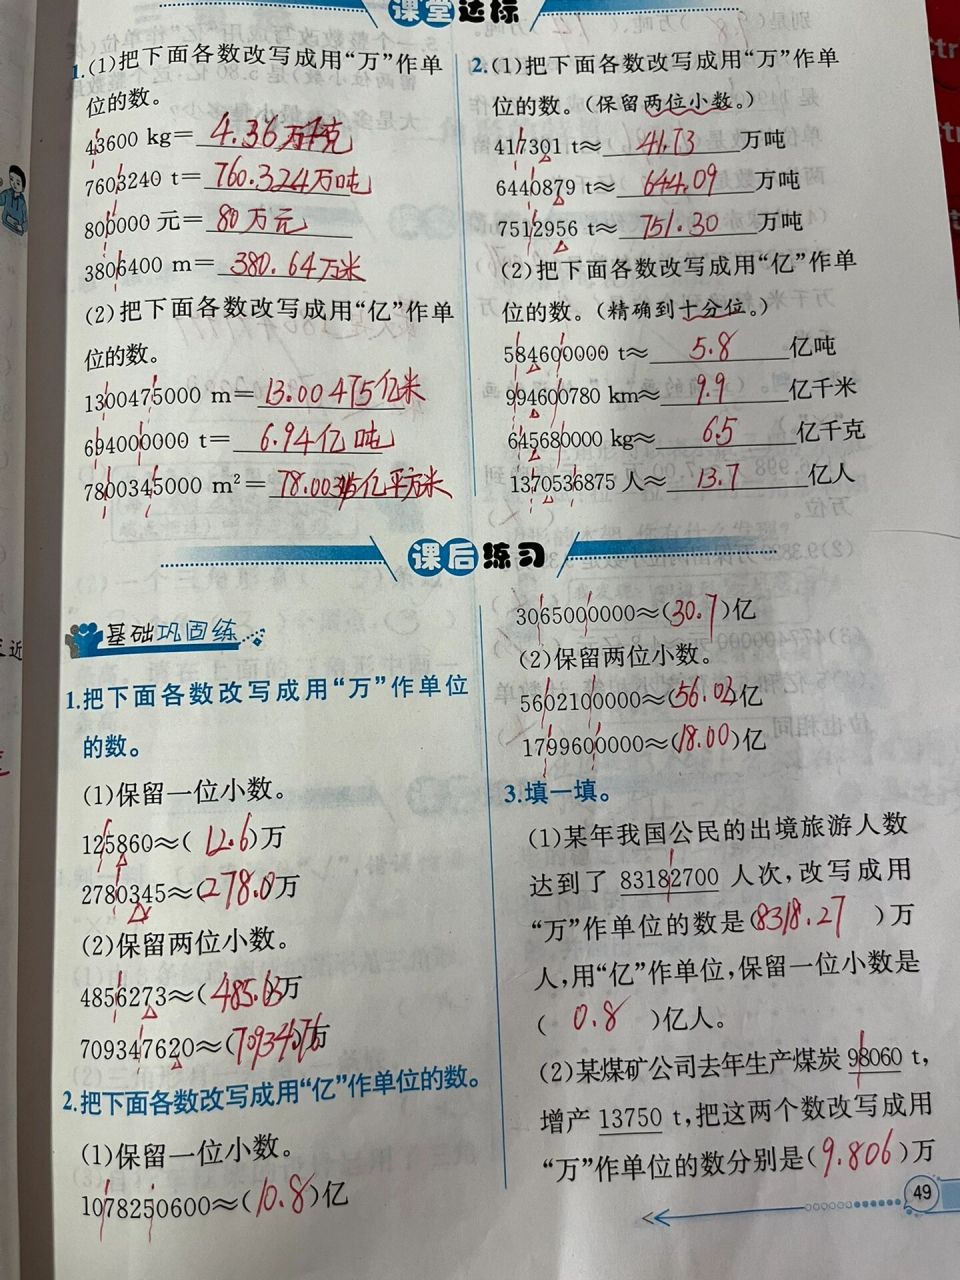 课堂达标
1.(1)把下面各数改写成用“万”作单
位的数。
43600 kg=4.36万千克
7603240 t=760.324万吨
800000 元=80万元
3806400 m=380.64万米
(2)把下面各数改写成用“亿”作单
位的数。
1300475000 m=13.00475亿米
694000000 t=6.94亿吨
7800345000 m²=78.00345亿平方米
2.(1)把下面各数改写成用“万”作单
位的数。(保留两位小数。)
417301 t≈41.73万吨
6440879 t≈644.09万吨
7512956 t≈751.30万吨
(2)把下面各数改写成用“亿”作单
位的数。(精确到十分位。)
584600000 t≈5.8亿吨
994600780 km≈9.9亿千米
645680000 kg≈6.5亿千克
1370536875 人≈13.7亿人
课后练习
基础巩固练
1.把下面各数改写成用“万”作单位
的数。
(1)保留一位小数。
125860≈(12.6)万
2780345≈(278.0)万
(2)保留两位小数。
4856273≈(485.63)万
709347620≈(70934.76)万
2.把下面各数改写成用“亿”作单位的数。
(1)保留一位小数。
1078250600≈(10.8)亿
3065000000≈(30.7)亿
(2)保留两位小数。
5602100000≈(56.02)亿
1799600000≈(18.00)亿
3.填一填。
(1)某年我国公民的出境旅游人数
达到了 83182700 人次,改写成用
“万”作单位的数是(8318.27)万
人,用“亿”作单位,保留一位小数是
(0.8)亿人。
(2)某煤矿公司去年生产煤炭 98060 t,
增产 13750 t,把这两个数改写成用
“万”作单位的数分别是(9.806)万
49